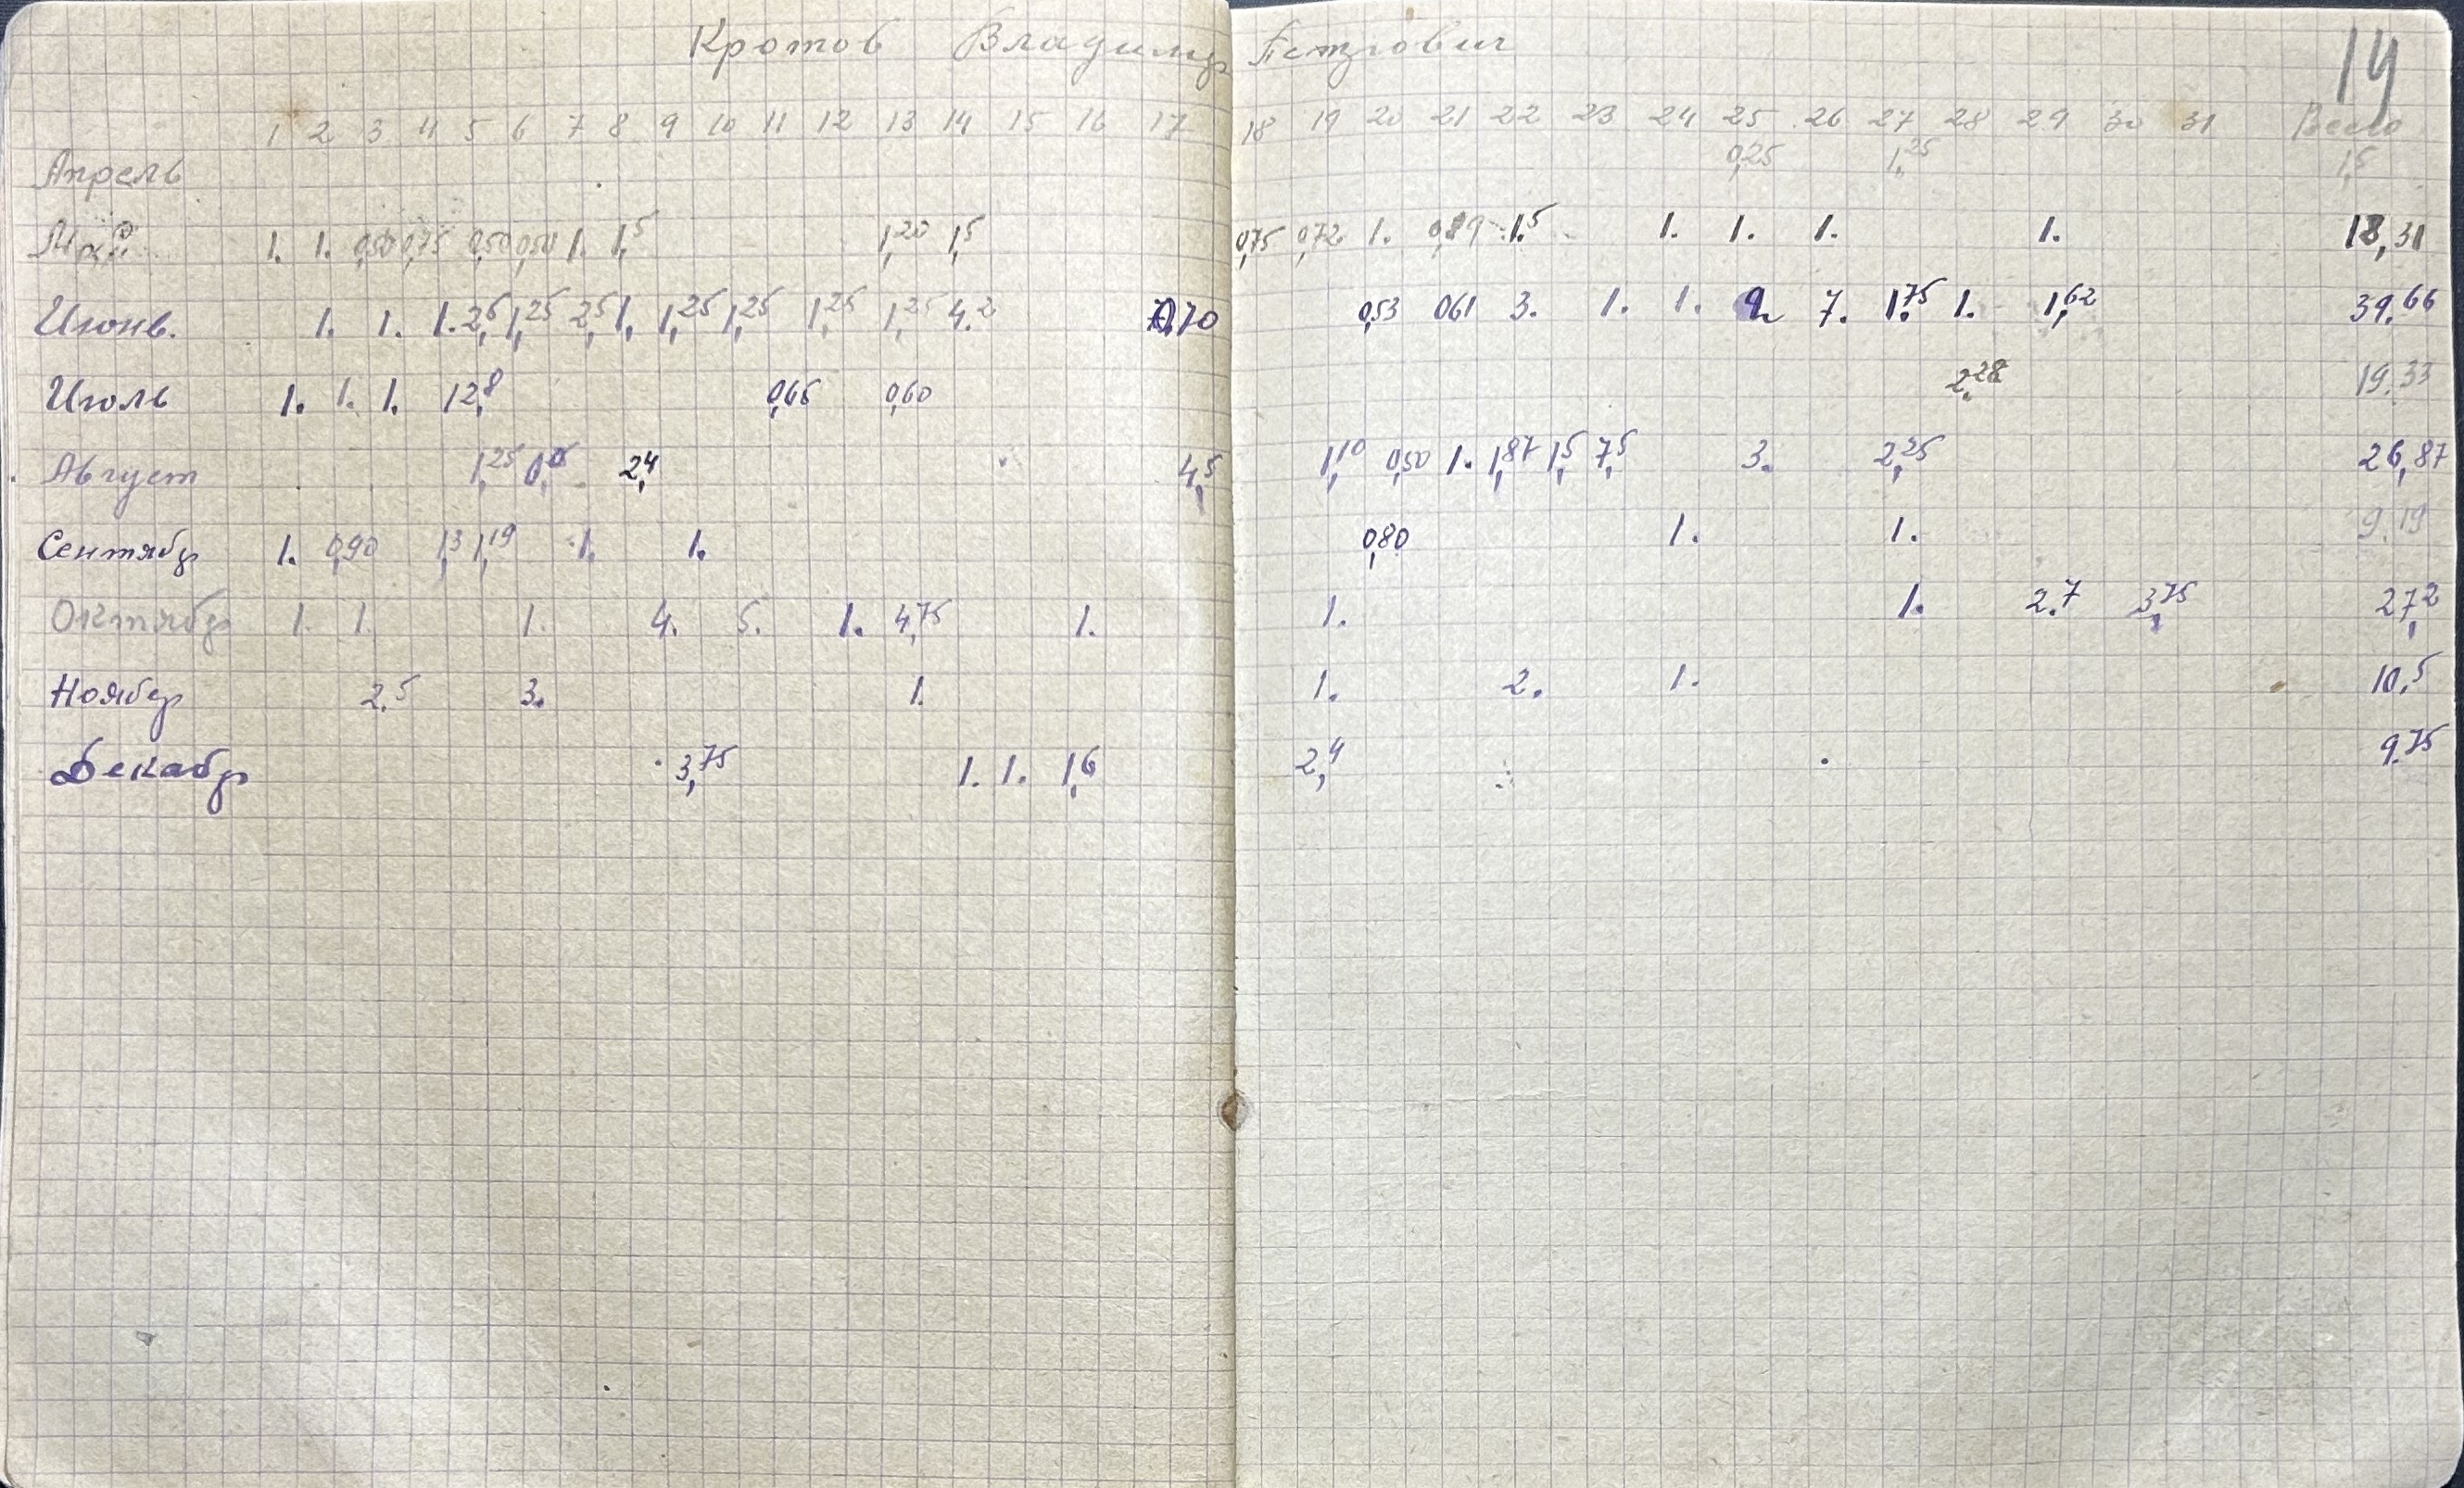 Кротов Владимир Петрович
14
1 2 3 4 5 6 7 8 9 10 11 12 13 14 15 16 17 18 19 20 21 22 23 24 25 26 27 28 29 30 31 Всего
Апрель 0,25 1,25 1,5
Май 1. 1. 0,50 0,75 0,50 0,50 1. 1,5 1,20 1,5 0,75 0,72 1. 0,89 1.5 1. 1. 1. 1. 18,31
Июнь. 1. 1. 1. 2,5 1,25 2,5 1. 1,25 1,25 1,25 1,25 4.2 0,70 0,53 061 3. 1. 1. 7. 1.75 1. 1,62 39.66
Июль 1. 1. 1. 12,8 0,65 0,60 2.28 19.33
Август 1,25 2,4 4,5 1,10 0,50 1. 1,87 1,5 7,5 3. 2,25 26,87
Сентябр 1. 0,90 1,3 1,19 1. 1. 0,80 1. 1. 9.19
Октябр 1. 1. 1. 4. 5. 1. 4,75 1. 1. 1. 2.7 3,75 27,2
Ноябр 2.5 3. 1. 1. 2. 1. 10.5
Декабр 3,75 1. 1. 1,6 2,4 9.75